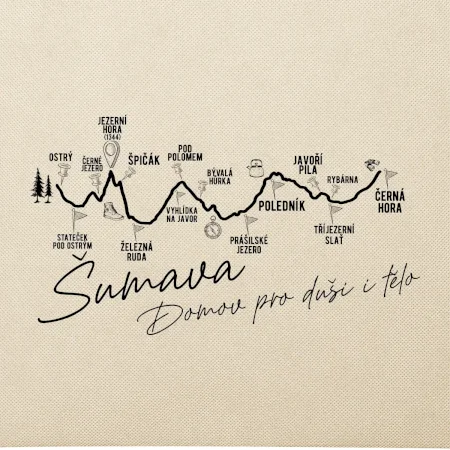 OSTRÝ
STATEČEK
POD OSTRÝM
ČERNÉ
JEZERO
JEZERNÍ
HORA
(1344)
ŠPIČÁK
ŽELEZNÁ
RUDA
POD
POLOMEM
VYHLÍDKA
NA JAVOR
BÝVALÁ
HŮRKA
PRÁŠILSKÉ
JEZERO
POLEDNÍK
JAVOŘÍ
PILA
RYBÁRNA
TŘÍJEZERNÍ
SLAŤ
ČERNÁ
HORA
Šumava
Domov pro duši i tělo